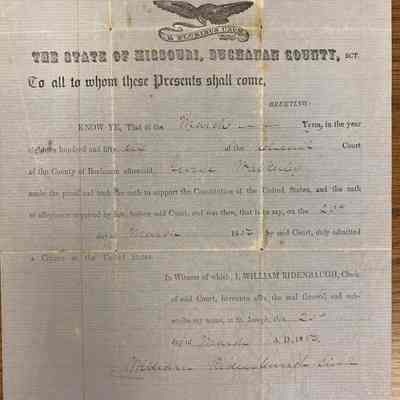 E PLURIBUS UNUM
THE STATE OF MISSOURI, BUCHANAN COUNTY, SCT.
To all to whom these Presents shall come,
GREETING:
KNOW YE, That at the March Term, in the year
eighteen hundred and fifty of the Court
of the County of Buchanan aforesaid, George
made the proof and took the oath to support the Constitution of the United States, and the oath
of allegiance required by law, before said Court, and was then, that is to say, on the
day March 185 by said Court, duly admitted
a Citizen of the United States.
In Witness of which, I, WILLIAM RIDENBAUGH, Clerk
of said Court, hereunto affix the seal thereof, and sub-
scribe my name, at St. Joseph, this
day of March A. D. 185
William Ridenbaugh Clerk